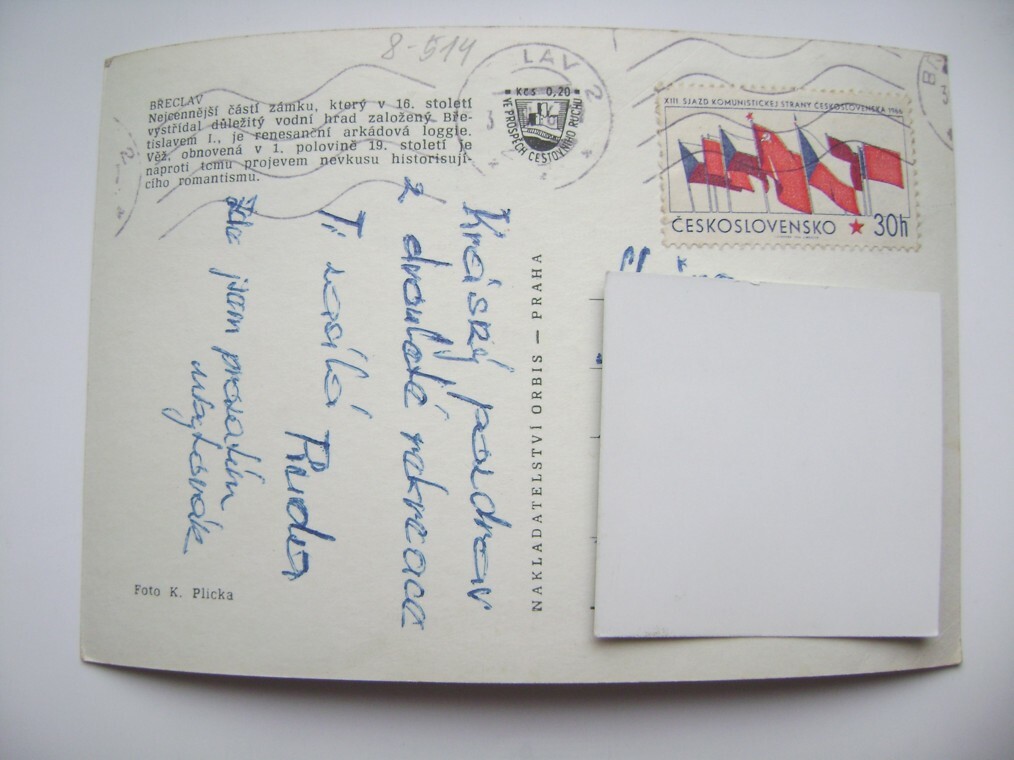 8-514
BŘECLAV
Nejcennější částí zámku, který v 16. století
vystřídal důležitý vodní hrad založený Bře-
tislavem I., je renesanční arkádová loggie.
Věž, obnovená v 1. polovině 19. století je
naproti tomu projevem nevkusu historisují-
cího romantismu.
LAV
2
3
Kčs 0,20
VE PROSPĚCH CESTOVNÍHO RUCHU
XIII. SJAZD KOMUNISTICKEJ STRANY ČESKOSLOVENSKA 1966
ČESKOSLOVENSKO ★ 30h
Krásný pozdrav
z
Ti zasílá
Ruda
Zde jsem prozatím
NAKLADATELSTVÍ ORBIS — PRAHA
Foto K. Plicka